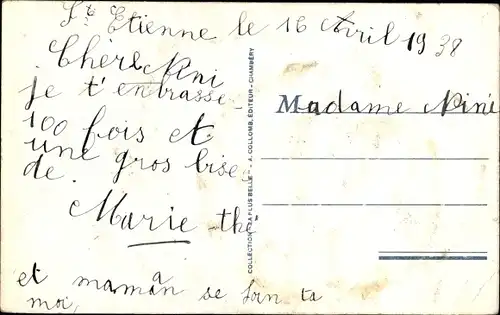 St Etienne le 16 Avril 1938
Chère Nini
je t'enbrasse
100 fois et
une gros bise
de.
Marie-thé
et maman
moi,
Madame Nini
COLLECTION "LA PLUS BELLE" - A. COLLOMB, ÉDITEUR - CHAMBÉRY